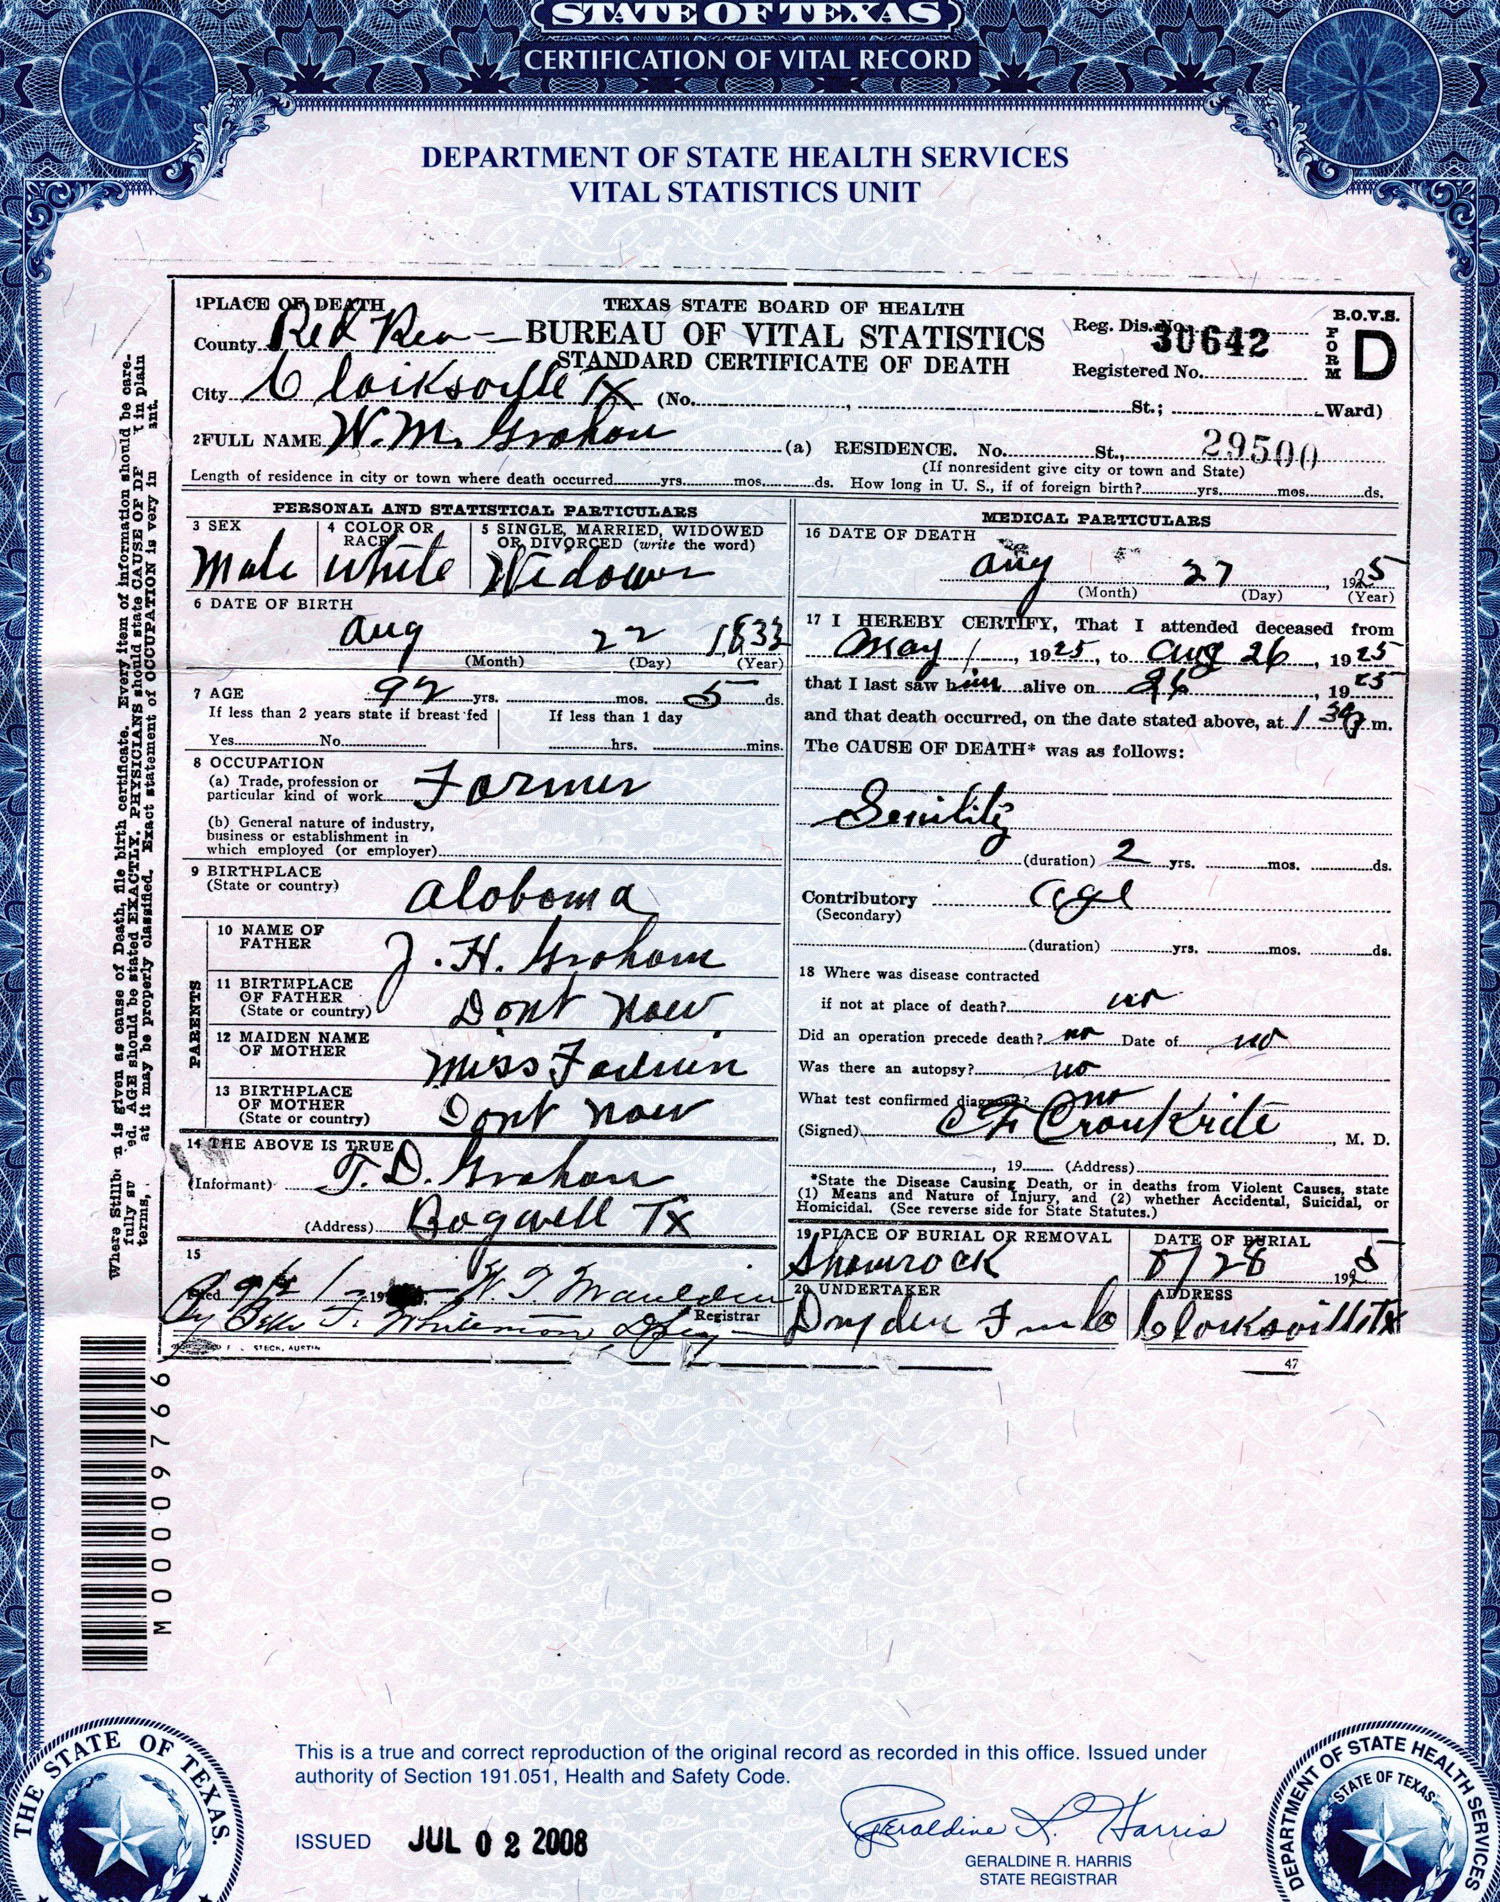 STATE OF TEXAS
CERTIFICATION OF VITAL RECORD
DEPARTMENT OF STATE HEALTH SERVICES
VITAL STATISTICS UNIT
1 PLACE OF DEATH
TEXAS STATE BOARD OF HEALTH
B.O.V.S.
County Red River
BUREAU OF VITAL STATISTICS
Reg. Dis. No. 30642
FORM D
STANDARD CERTIFICATE OF DEATH
Registered No.
City Clarksville Tx (No. , St.; Ward)
2 FULL NAME W. M. Graham (a) RESIDENCE. No. St., 29500
(If nonresident give city or town and State)
Length of residence in city or town where death occurred yrs. mos. ds. How long in U. S., if of foreign birth? yrs. mos. ds.
PERSONAL AND STATISTICAL PARTICULARS
3 SEX
Male
4 COLOR OR RACE
White
5 SINGLE, MARRIED, WIDOWED
OR DIVORCED (write the word)
Widower
6 DATE OF BIRTH
Aug 22 1833
(Month) (Day) (Year)
7 AGE 92 yrs. mos. 5 ds.
If less than 2 years state if breast fed
If less than 1 day
Yes No
hrs. mins.
8 OCCUPATION
(a) Trade, profession or
particular kind of work Farmer
(b) General nature of industry,
business or establishment in
which employed (or employer)
9 BIRTHPLACE
(State or country) Alabama
PARENTS
10 NAME OF
FATHER J. H. Graham
11 BIRTHPLACE
OF FATHER
(State or country) Dont Now
12 MAIDEN NAME
OF MOTHER Miss
13 BIRTHPLACE
OF MOTHER
(State or country) Dont Now
14 THE ABOVE IS TRUE
(Informant) T. D. Graham
(Address) Bagwell Tx
15
Filed W. T. Mauldin
Registrar
STECK, AUSTIN
MEDICAL PARTICULARS
16 DATE OF DEATH
Aug 27, 1925
(Month) (Day) (Year)
17 I HEREBY CERTIFY, That I attended deceased from
May 1, 1925, to Aug 26, 1925
that I last saw him alive on 26, 1925
and that death occurred, on the date stated above, at 1 30 p m.
The CAUSE OF DEATH* was as follows:
Senility
(duration) 2 yrs. mos. ds.
Contributory age
(Secondary)
(duration) yrs. mos. ds.
18 Where was disease contracted
if not at place of death? no
Did an operation precede death? no Date of no
Was there an autopsy? no
What test confirmed diagnosis? no
(Signed) , M. D.
, 19 (Address)
*State the Disease Causing Death, or in deaths from Violent Causes, state
(1) Means and Nature of Injury, and (2) whether Accidental, Suicidal, or
Homicidal. (See reverse side for State Statutes.)
19 PLACE OF BURIAL OR REMOVAL
Shamrock
DATE OF BURIAL
8/28 1925
20 UNDERTAKER
Dryden
ADDRESS
Clarksville Tx
47
M0009766
This is a true and correct reproduction of the original record as recorded in this office. Issued under
authority of Section 191.051, Health and Safety Code.
ISSUED JUL 02 2008
Geraldine R. Harris
GERALDINE R. HARRIS
STATE REGISTRAR
THE STATE OF TEXAS.
DEPARTMENT OF STATE HEALTH SERVICES
STATE OF TEXAS